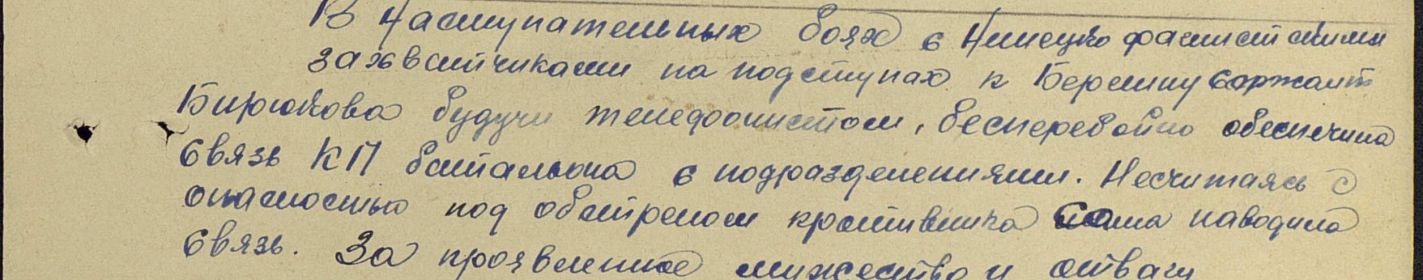 В наступательных боях с Немецко фашистскими
захватчиками на подступах к Берлину сержант
Бирюкова будучи телефонистом, бесперебойно обеспечила
связь КП батальона с подразделениями. Несчитаясь с
опасностью под обстрелом противника сама наводила
связь. За проявленное мужество и отвагу